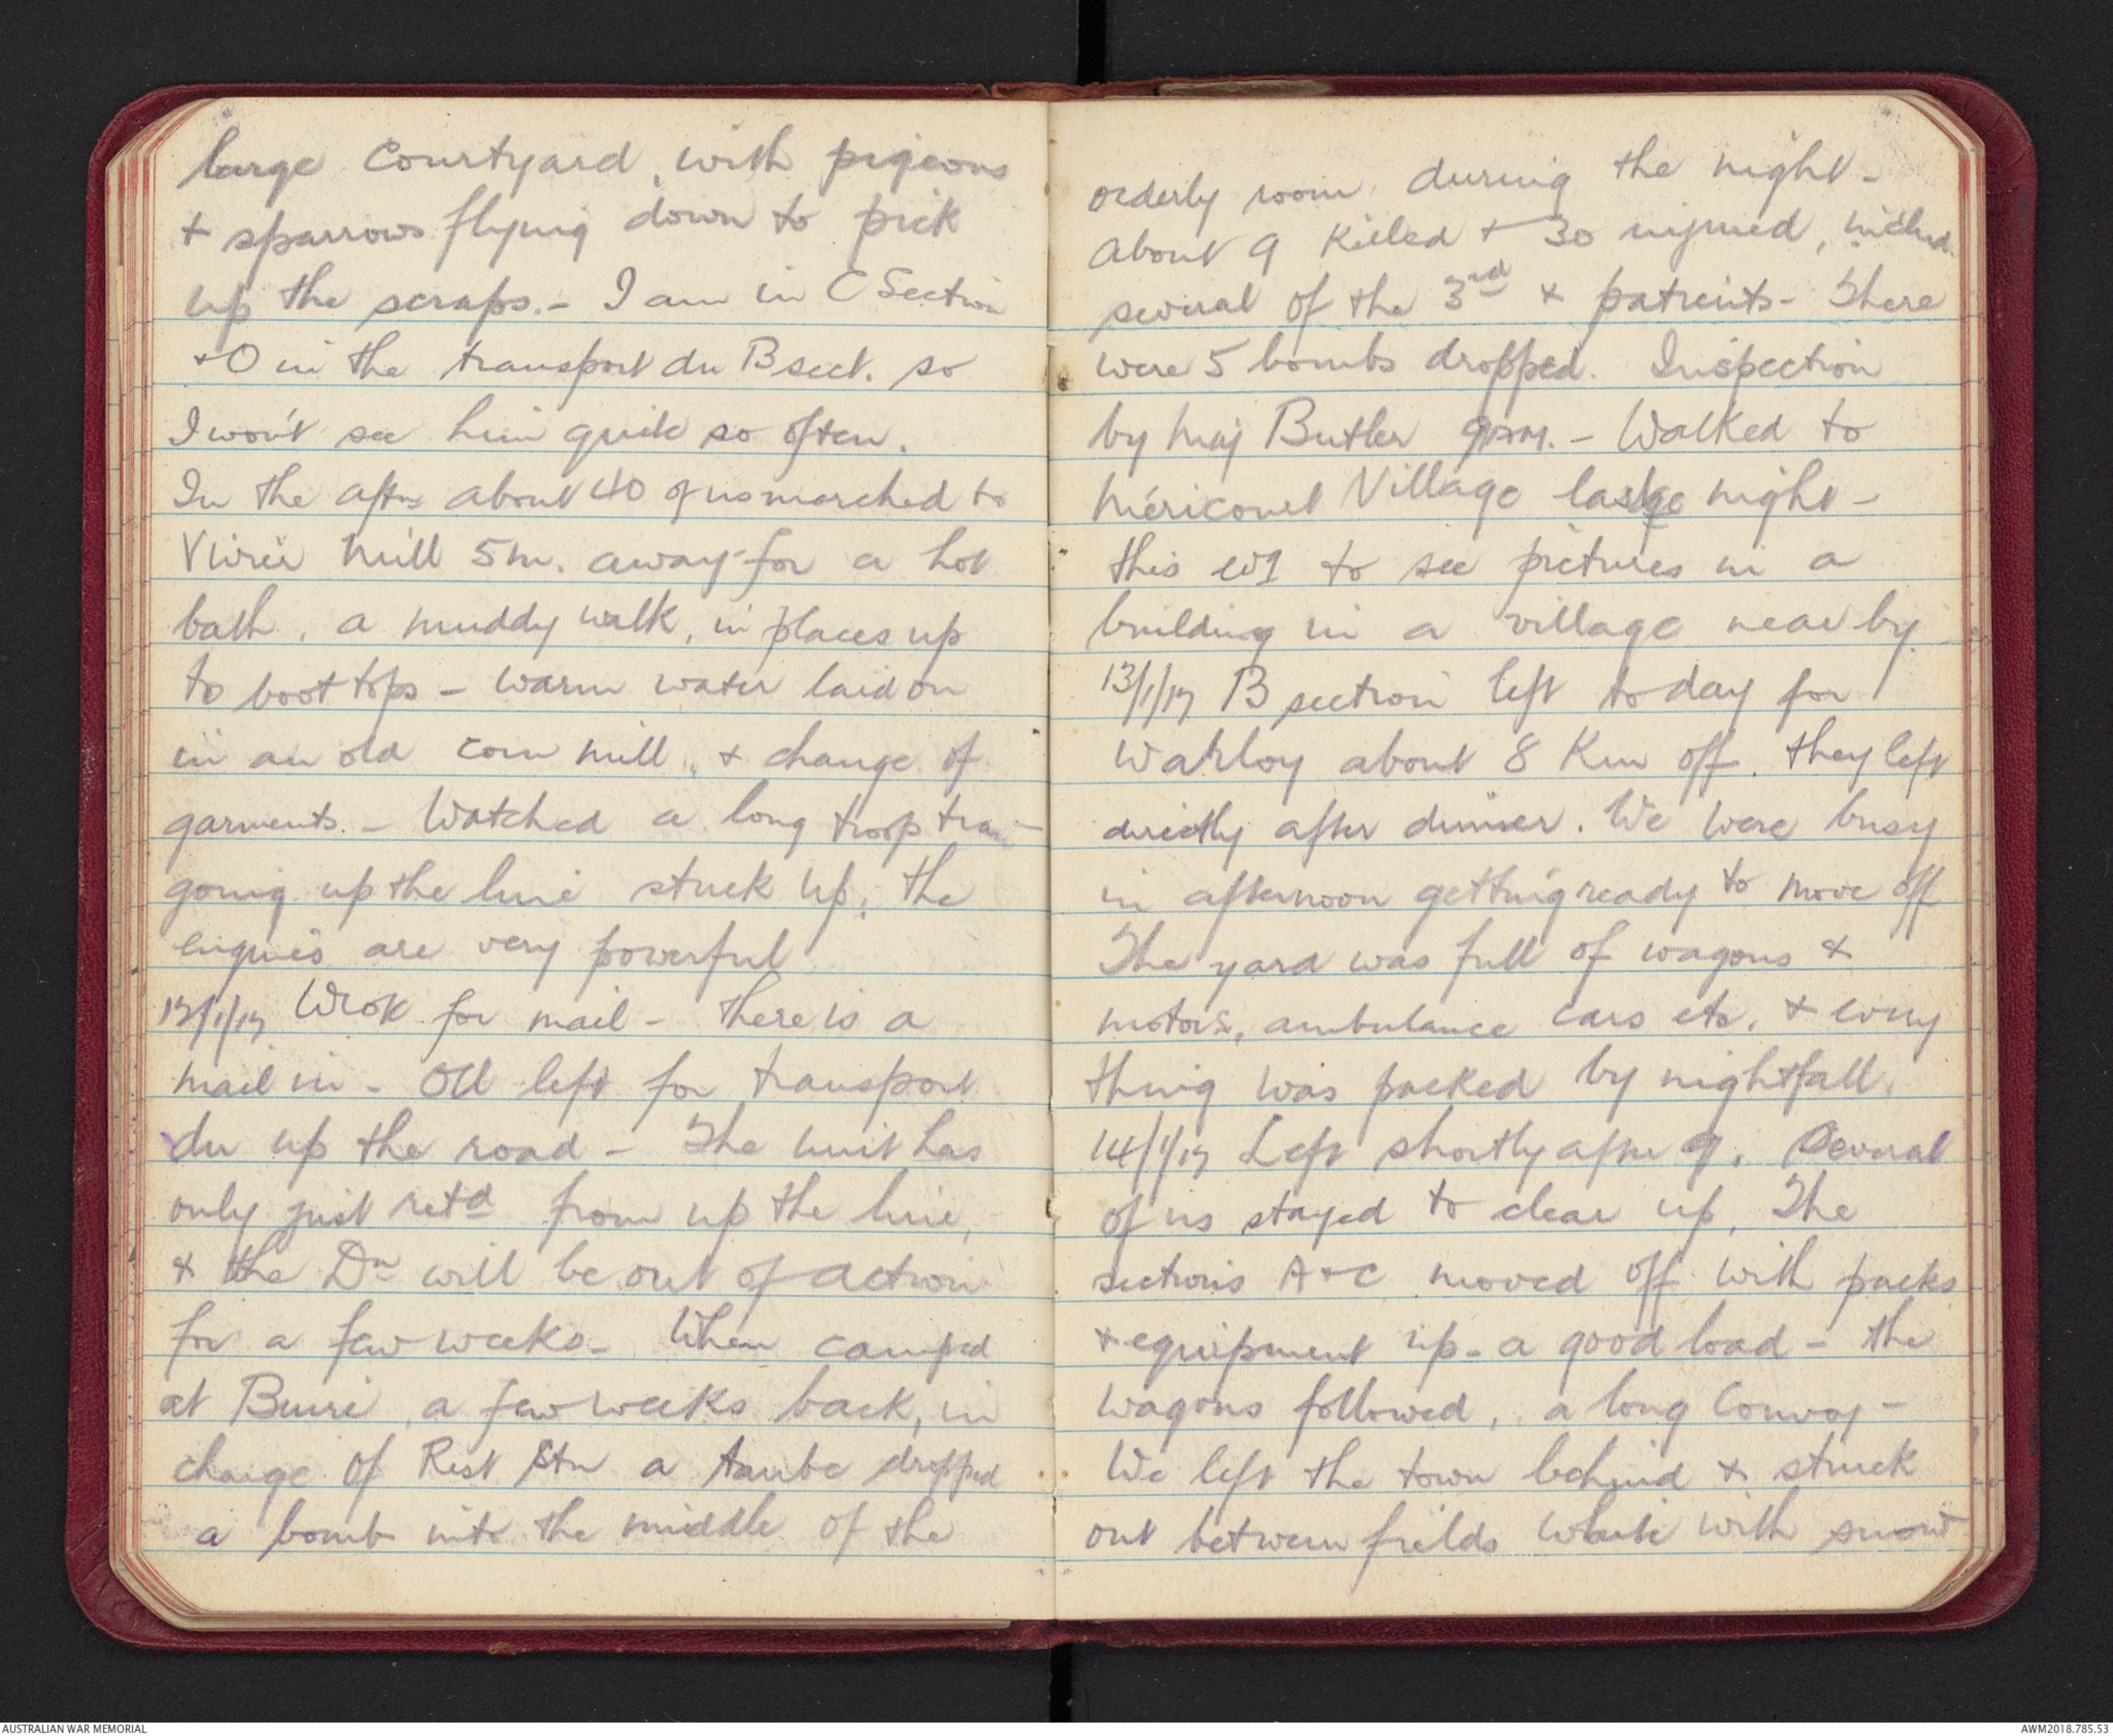 large courtyard, with pigeons
+ sparrows flying down to pick
up the scraps. - I am in C Section
+ O in the transport du B sect. so
I won't see him quite so often.
In the aftn about 40 of us marched to
Mill 5m. away for a hot
bath, a muddy walk, in places up
to boot tops - warm water laid on
in an old corn mill, + change of
garments. - Watched a long troop train
going up the line stuck up, the
engines are very powerful
for mail - there is a
mail in - left for transport
du up the road - The unit has
only just retd from up the line,
+ the Dn will be out of action
for a few weeks - When camped
at a few weeks back, in
charge of Rest Stn a taube dropped
a bomb into the middle of the
orderly room during the night -
About 9 killed + 30 injured, includ.
several of the 3rd + patients - There
were 5 bombs dropped. Inspection
by Maj Butler - Walked to
Méricourt Village night -
this to see pictures in a
building in a village near by.
13/1/17 B section left today for
Warloy about 8 Km off. they left
directly after dinner. We were busy
in afternoon getting ready to move off
The yard was full of wagons +
motors, ambulance cars etc, + every
thing was packed by nightfall.
14/1/17 Left shortly after 9. Several
of us stayed to clear up. The
sections A + C moved off with packs
+ equipment up - a good load - the
wagons followed, a long convoy -
We left the town behind + struck
out between fields white with snow
AUSTRALIAN WAR MEMORIAL
AWM2018.785.53